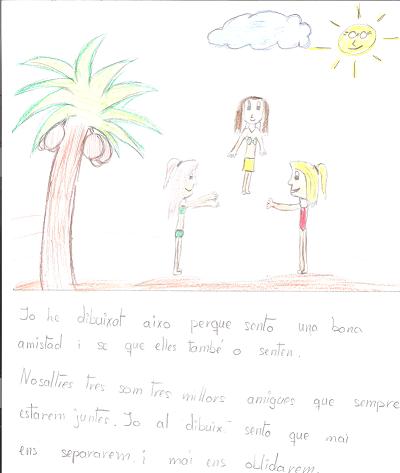 Jo he dibuixat aixo perque sento una bona
amistad i se que elles també o senten.
Nosaltres tres som tres millors amigues que sempre
estarem juntes. Jo al dibuix sento que mai
ens separarem i mai ens oblidarem.